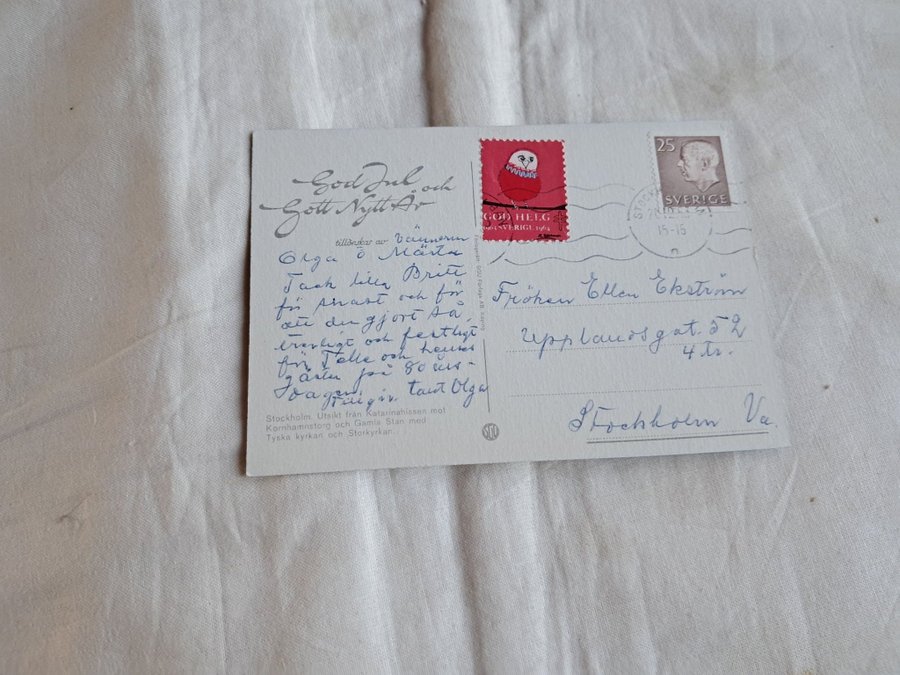 God Jul och
Gott Nytt År
tillönskar av Vännerna
Olga o Märta
Tack lilla Britt
för sinast och för
att du gjort så
trevligt och festligt
för Talle och hennes
gäster på 80 års-
dagen.
Tillgiv. tant Olga
Stockholm. Utsikt från Katarinahissen mot
Kornhamnstorg och Gamla Stan med
Tyska kyrkan och Storkyrkan.
GOD HELG
SVERIGE 1964
25
SVERIGE
15-16
Fröken Ellen Ekström
Upplandsgat. 52
4 tr.
Stockholm Va.